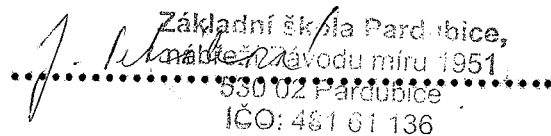 Základní škola Pardubice,
nábřeží Závodu míru 1951
530 02 Pardubice
IČO: 481 61 136